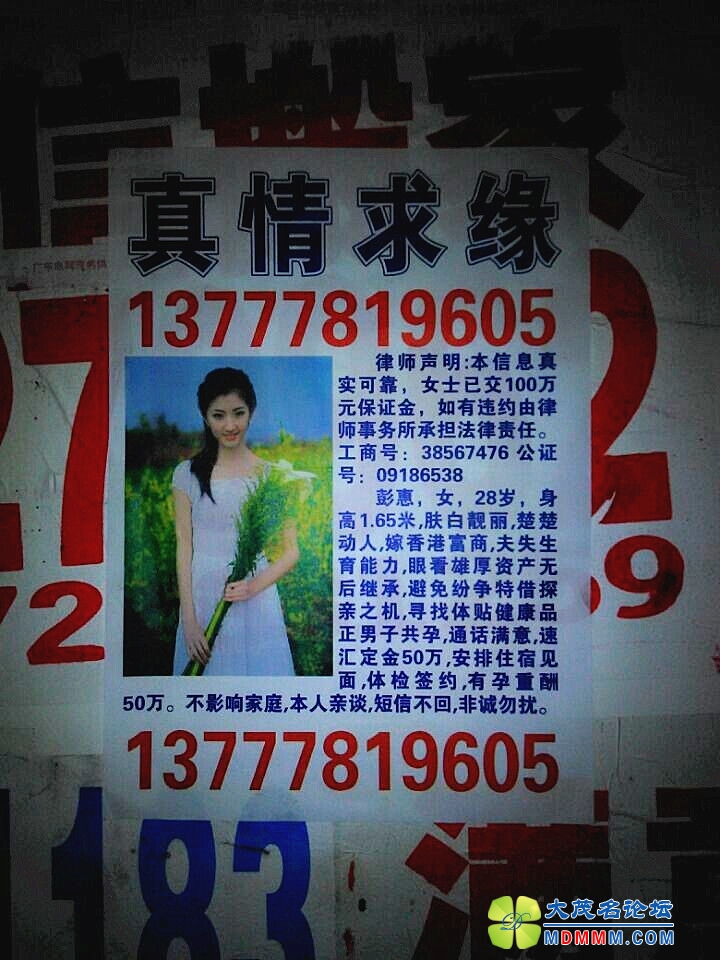 信搬家
真情求缘
广东电网茂名供
13777819605
律师声明:本信息真
实可靠，女士已交100万
元保证金，如有违约由律
师事务所承担法律责任。
工商号：38567476 公证
号：09186538
彭惠，女，28岁，身
高1.65米,肤白靓丽,楚楚
动人,嫁香港富商,夫失生
育能力,眼看雄厚资产无
后继承,避免纷争特借探
亲之机,寻找体贴健康品
正男子共孕,通话满意,速
汇定金50万,安排住宿见
面,体检签约,有孕重酬
50万。不影响家庭,本人亲谈,短信不回,非诚勿扰。
13777819605
27
2
72
69
183
大茂名论坛
MDMMM.COM